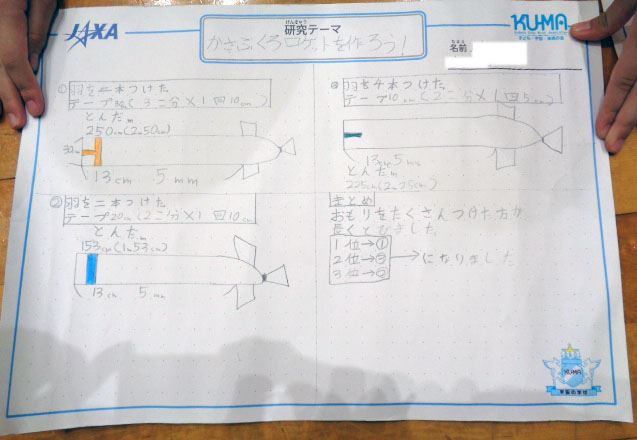 JAXA
けんきゅう
研究テーマ
かさぶくろロケットを作ろう!
KU-MA
子ども・宇宙・未来の会
なまえ
名前
①
羽を二本つけた
テープ30cm(3こ分×1回10cm)
とんだm
250cm(2m50cm)
32cm
13cm 5mm
②
羽を二本つけた
テープ20cm(2こ分×1回10cm)
とんだm
153cm(1m53cm)
13cm 5mm
③
羽を二本つけた
テープ10cm(2こ分×1回5cm)
13cm5mm
とんだm
225cm(2m25cm)
まとめ
おもりをたくさんつけた方が
長くとびました
1位→①
2位→③
3位→②
→になりました
KU-MA
宇宙の学校